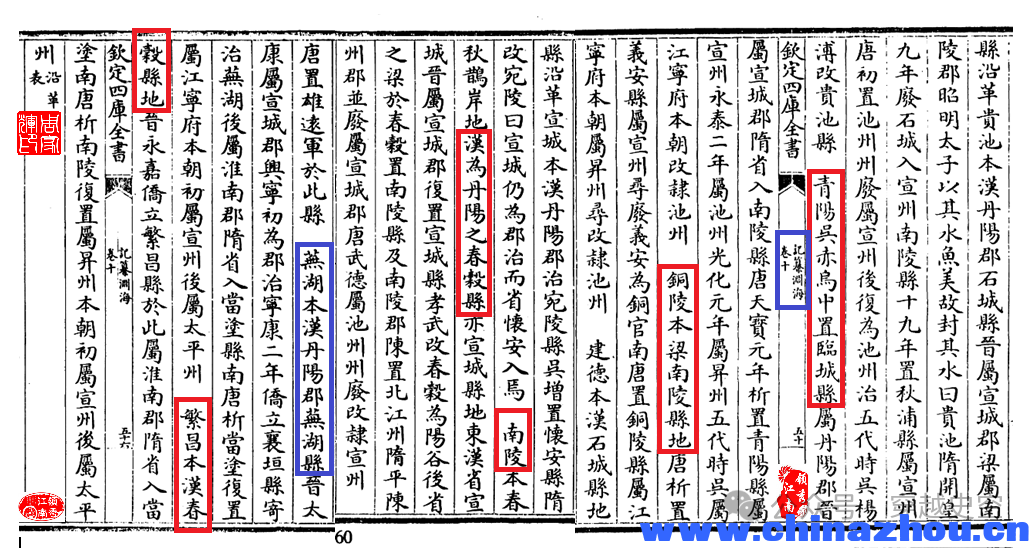 縣沿革貴池本漢丹陽郡石城縣晉屬宣城郡梁屬南
陵郡昭明太子以其水魚美故封其水曰貴池隋開皇
九年廢石城入宣州南陵縣十九年置秋浦縣屬宣州
唐初置池州州廢屬宣州後復為池州治五代時吳楊
溥改貴池縣 青陽吳赤烏中置臨城縣屬丹陽郡晉
欽定四庫全書 記纂淵海 卷十 五十
屬宣城郡隋省入南陵縣唐天寶元年析置青陽縣屬
宣州永泰二年屬池州光化元年屬昇州五代時吳屬
江寧府本朝改隸池州 銅陵本梁南陵縣地唐析置
義安縣屬宣州尋廢義安為銅官南唐置銅陵縣屬江
寧府本朝屬昇州尋改隸池州 建德本漢石城縣地
縣沿革宣城本漢丹陽郡治宛陵縣吳增置懷安縣隋
改宛陵曰宣城仍為郡治而省懷安入焉 南陵本春
秋鵲岸地漢為丹陽之春穀縣亦宣城縣地東漢省宣
城晉屬宣城郡復置宣城縣孝武改春穀為陽谷後省
之梁於春穀置南陵縣及南陵郡陳置北江州隋平陳
州郡並廢屬宣城郡唐武德屬池州州廢改隸宣州
唐置雄遠軍於此縣 蕪湖本漢丹陽郡蕪湖縣晉太
康屬宣城郡興寧初為郡治寧康二年僑立襄垣縣寄
治蕪湖後屬淮南郡隋省入當塗縣南唐析當塗復置
屬江寧府本朝初屬宣州後屬太平州 繁昌本漢春
穀縣地晉永嘉僑立繁昌縣於此屬淮南郡隋省入當
欽定四庫全書 記纂淵海 卷十 五十六
塗南唐析南陵復置屬昇州本朝初屬宣州後屬太平
州 沿革表
60
公众号
www.chinazhou.cn